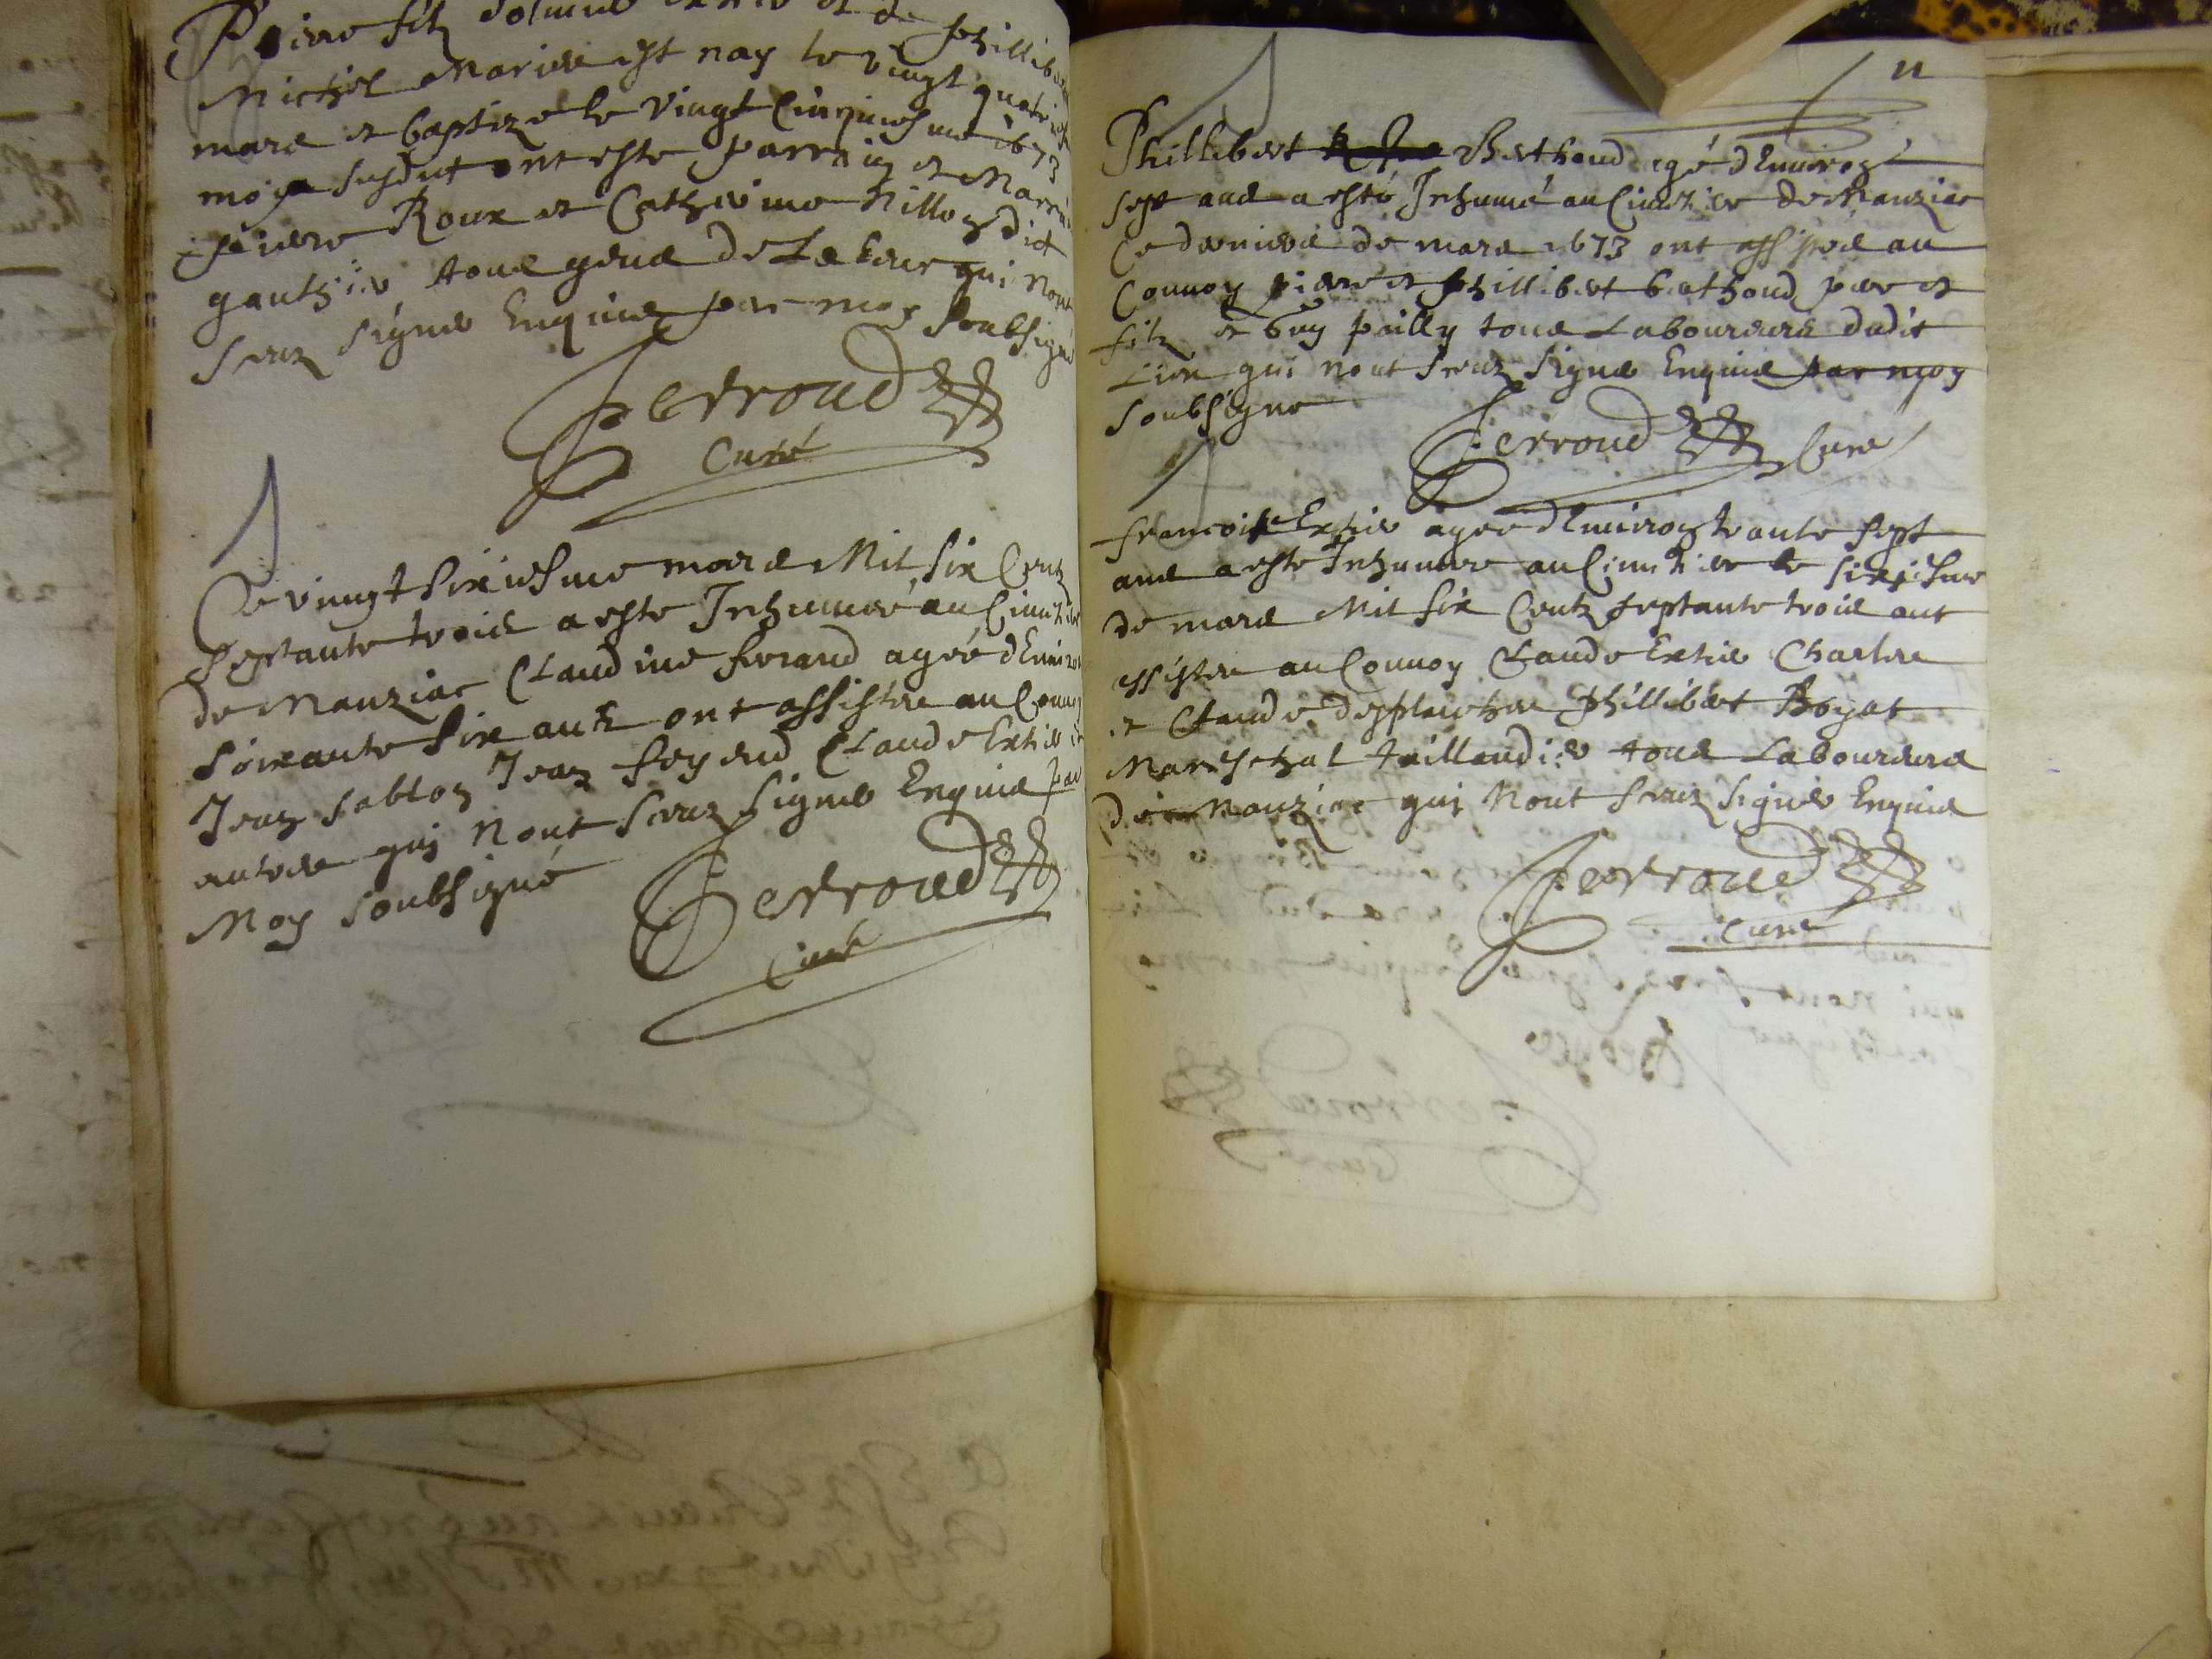 Pierre filz
Michel Mariee est nay le vingt quatriesme
mars et baptizé le vingt cinquiesme 1673
moys susdict ont este parrain et Marrine
pierre Roux et Catherine Nillon dict
gauthier tous gens de Labeur qui nont
sceuz signer Enquis par moy soubsigné
Perroud
Curé
Ce vingt sixiesme mars Mil six Centz
septante trois a este Inhumeé au Cimetiere
de Manziac Claudine ferand ageé dEnviron
soixante six ans ont assistez au Convoy
Jean sablon Jean feyend Claude Extier et
autres qui nont sceuz signer Enquis par
Moy soubsigné
Perroud
Curé
11
Phillibert Berthoud agé dEnviron
sept ans a esté Inhumé au Cimetiere de Manziac
Ce dernier de mars 1673 ont assistez au
Convoy pierre et phillibert berthoud pere et
filz et Guy pailly tous Laboureurs dudit
Lieu qui nont sceuz signer Enquis par moy
soubsigne
Perroud Curé
francoise Extier ageé dEnviron trante sept
ans a este Inhumeé au Cimetiere le sixiesme
de mars Mil six Centz septante trois ont
assistez au Convoy Claude Extier Charles
et Claude desplanches Phillibert Boyat
Mareschal taillandier tous Laboureurs
de Manziac qui Nont sceuz signer Enquis
Perroud
Curé